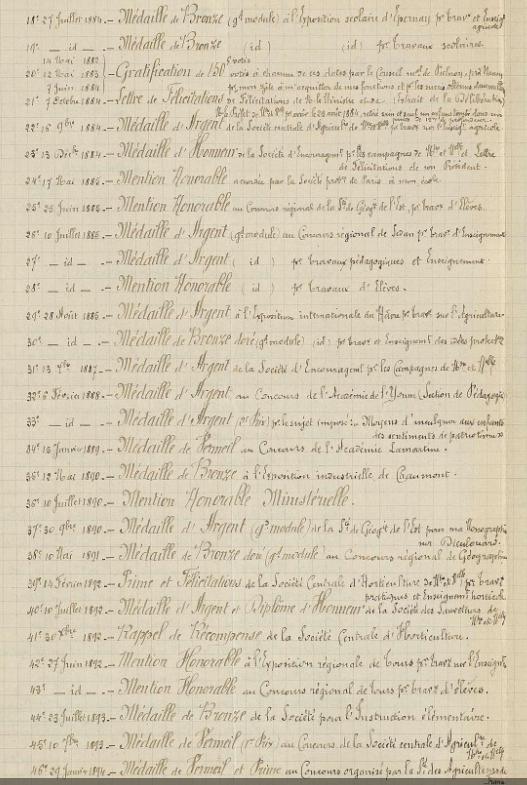 18º 27 Juillet 1884. — Médaille de Bronze (gd module) à l'Exposition scolaire d'Epernay pr travx et Enseigt
agricole
19º — id — . — Médaille de Bronze ( id ) ( id ) pr Travaux scolaires.
14 Mai 1882
20º 12 Mai 1883 . — Gratification de 150f votés à chacune de ces dates par le Conseil
7 Juin 1884
21º 7 Octobre 1884. — Lettre de Félicitations
22º 16 9bre 1884. — Médaille d'Argent de la Société centrale d'Agricult.
23º 13 Déc. 1884. — Médaille d'Honneur de la Société d'Encouragemt pr les campagnes de et Lettre
de Félicitations de son Président.
24º 17 Mai 1885. — Mention Honorable accordée par la Société protce de Paris à mon école.
25º 25 Juin 1885. — Mention Honorable au Concours régional de la Sté de Géogie de l'Est, pr travx d'Elèves.
26º 10 Juillet 1885. — Médaille d'Argent (gd module) au Concours régional de pr travx d'Enseignement
27º — id — . — Médaille d'Argent ( id ) pr Travaux pédagogiques et Enseignement.
28º — id — — Mention Honorable ( id ) pr Travaux d'Elèves.
29º 28 Août 1885. — Médaille d'Argent à l'Exposition internationale du Hâvre pr travx sur l'Agriculture
30º — id — . — Médaille de Bronze doré (gd module) (id) pr travx et Enseignemt des
31º 13 7bre 1887. — Médaille d'Argent de la Société d'Encouragemt pr les Campagnes de
32º 6 Février 1888. — Médaille d'Argent, au Concours de l'Académie de l'Yonne (Section de Pédagogie)
33º — id — . — Médaille d'Argent (2e Prix) pr le sujet imposé: Moyens d'inculquer aux enfants
des sentiments de patriotisme
34º 16 Janvier 1889. — Médaille de Vermeil au Concours de l'Académie Lamartine.
35º 12 Mai 1890. — Médaille de Bronze à l'Exposition industrielle de Chaumont.
36º 10 Juillet 1890. — Mention Honorable Ministérielle.
37º 30 9bre 1890. — Médaille d'Argent (gd module) de la Sté de Géogie de l'Est pour ma Monographie
sur Dieulouard.
38º 10 Mai 1891. — Médaille de Bronze doré (gd module) au Concours régional de Géographie
39º 14 Février 1892. — Prime et Félicitations de la Société Centrale d'Horticulture de pr travx
pratiques et Enseignemt horticole
40º 10 Juillet 1892. — Médaille d'Argent et Diplôme d'Honneur de la Société des Sauveteurs de
41º 30 Xbre 1892. — Rappel de Récompense de la Société Centrale d'Horticulture.
42º 27 Juin 1892. — Mention Honorable à l'Exposition régionale de Tours pr travx sur l'Enseigt
43º — id — . — Mention Honorable au Concours régional de Tours pr travx d'élèves.
44º 23 Juillet 1893. — Médaille de Bronze de la Société pour l'Instruction élémentaire.
45º 10 7bre 1893. — Médaille de Vermeil (1er Prix) au Concours de la Société centrale d'Agricult. de
46º 29 Janvier 1894. — Médaille de Vermeil et Prime au Concours organisé par la Sté des Agriculteurs de
France